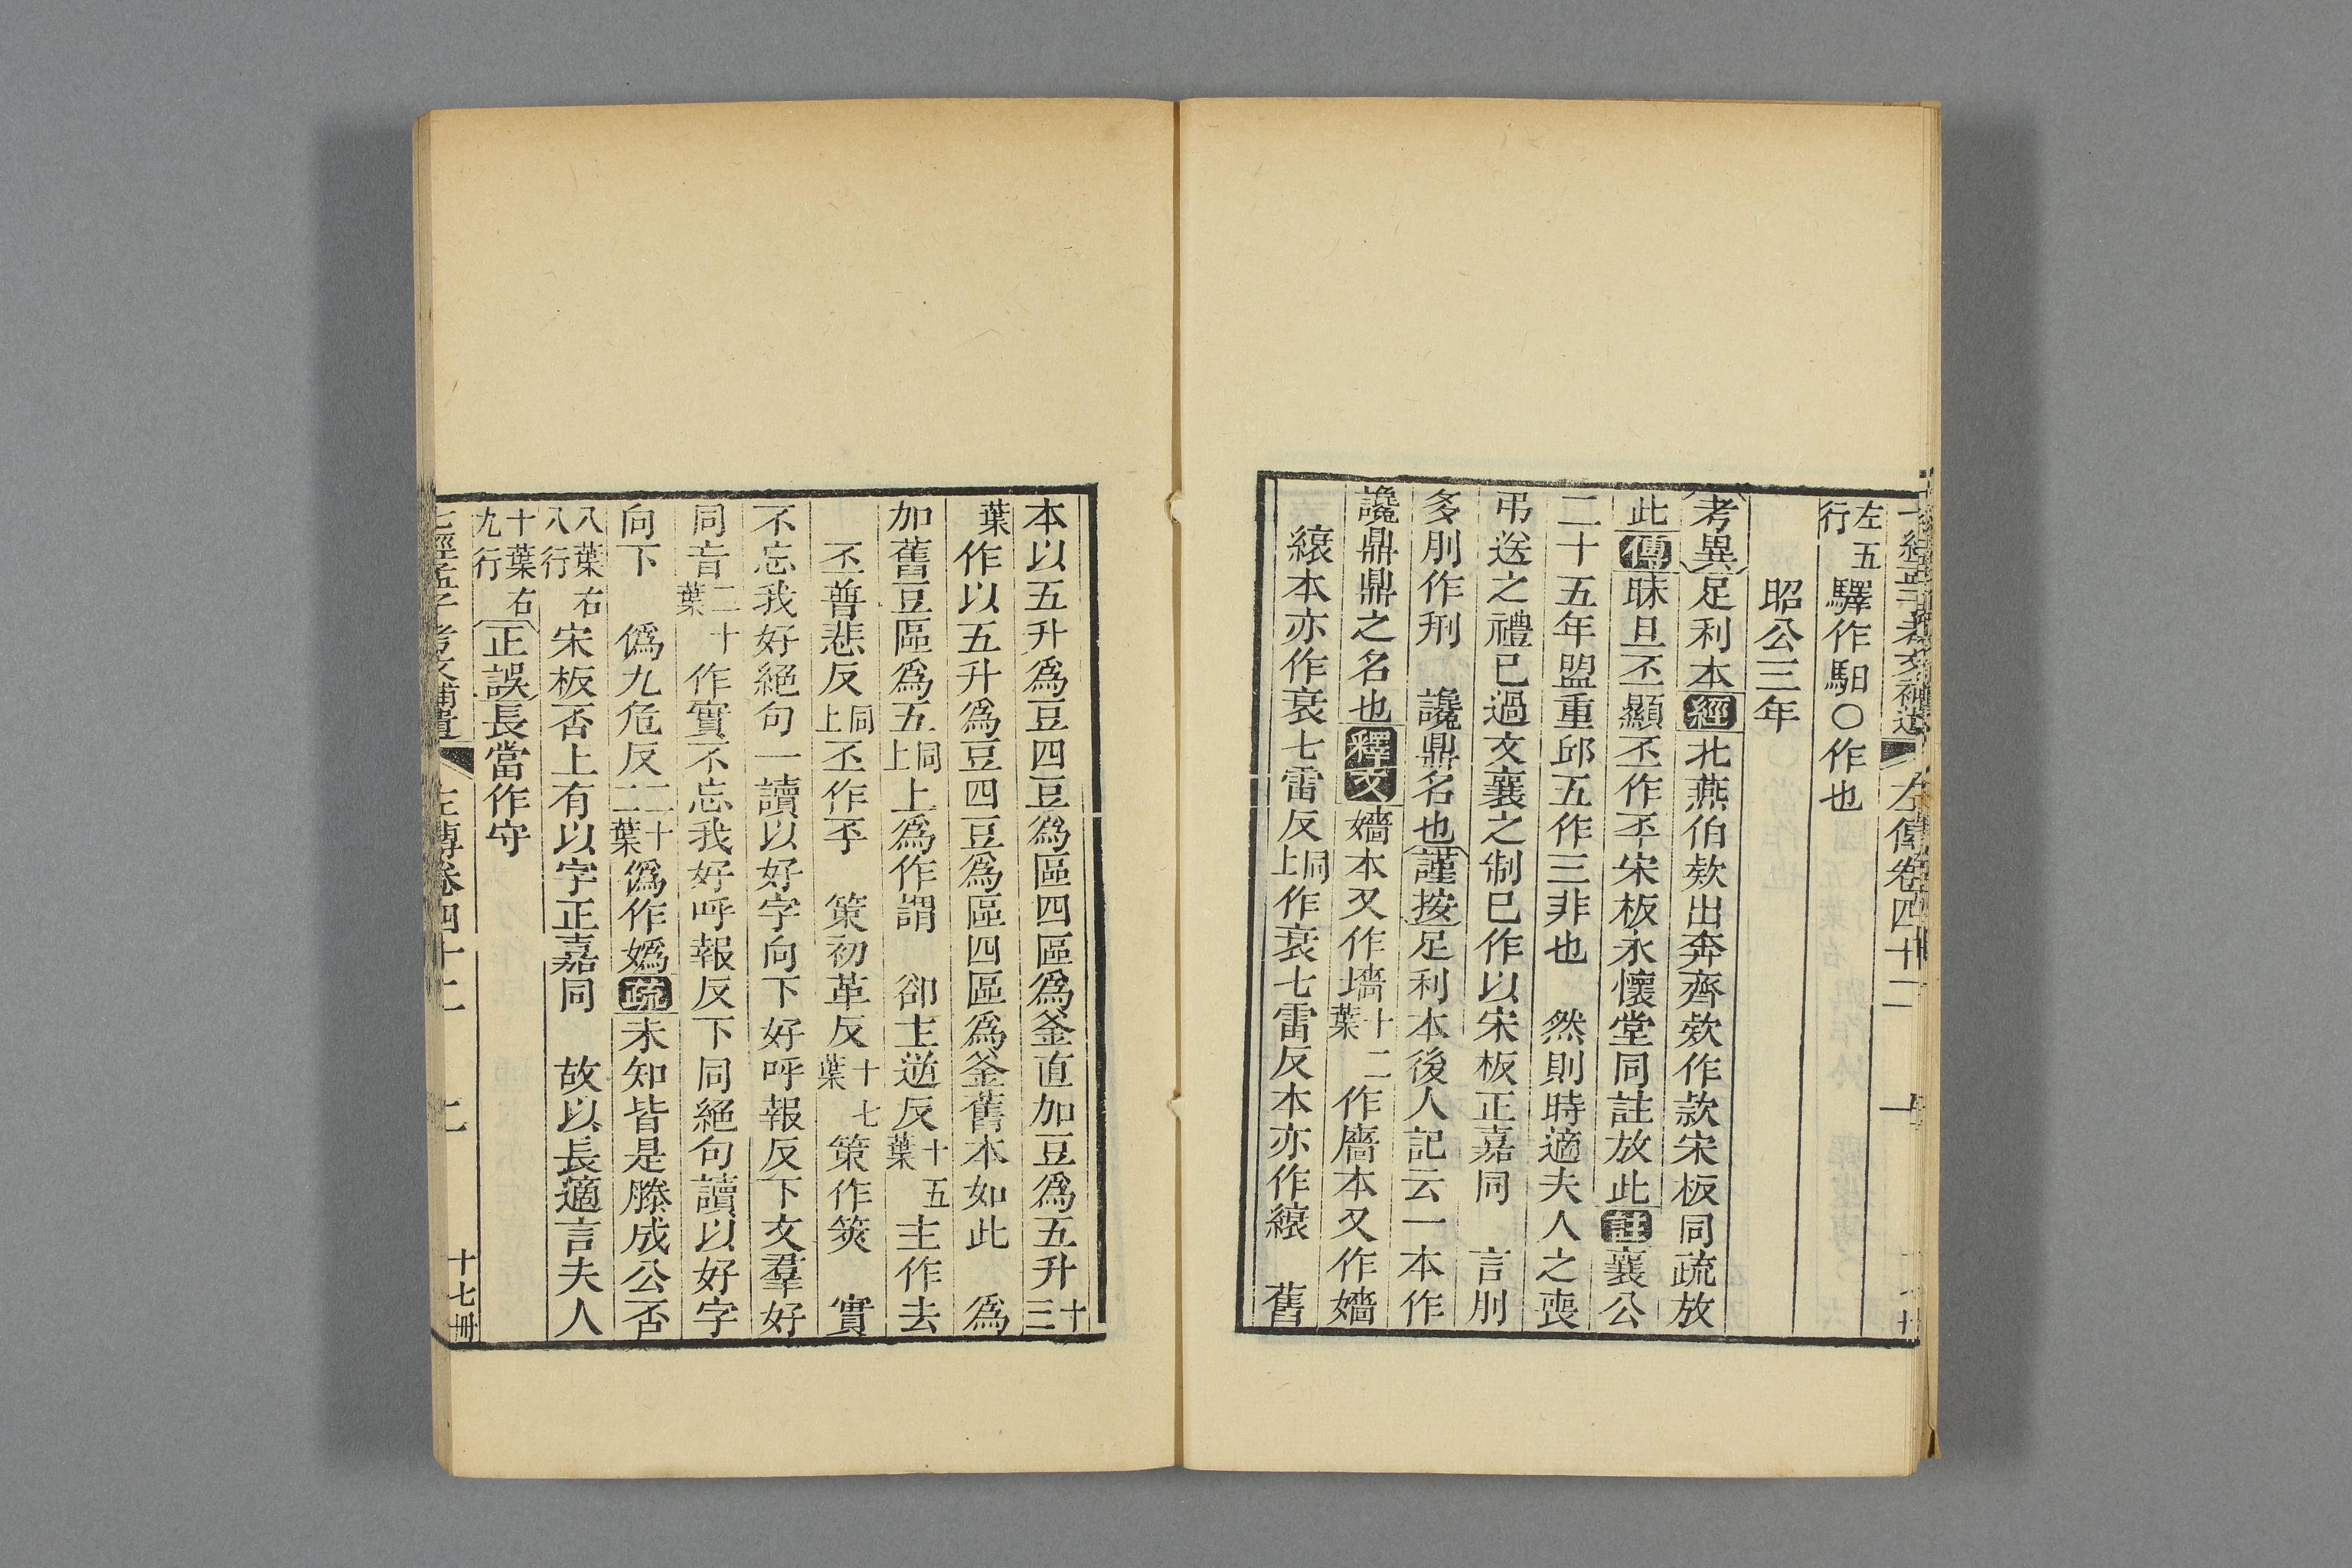 左五行驛作馹○作也
昭公三年
考異足利本經北燕伯欵出奔齊欵作款宋板同疏放
此傳昧旦丕顯丕作㔻宋板永懷堂同註放此註襄公
二十五年盟重邱五作三非也　然則時適夫人之喪
弔送之禮已過文襄之制已作以宋板正嘉同　言刖
多刖作刑　讒鼎名也謹按足利本後人記云一本作
讒鼎鼎之名也釋文嬙本又作墻十二葉作廧本又作嬙
縗本亦作衰七雷反同上作衰七雷反本亦作縗　舊
本以五升爲豆四豆爲區四區爲釜直加豆爲五升十三
葉作以五升爲豆四豆爲區四區爲釜舊本如此　爲
加舊豆區爲五同上上爲作謂　卻主逆反十五葉主作去
丕普悲反同上丕作㔻　策初革反十七葉策作筴　實
不忘我好絕句一讀以好字向下好呼報反下文羣好
同音二十葉作實不忘我好呼報反下同絕句讀以好字
向下　僞九危反二十二葉僞作嬀疏未知皆是滕成公否
八葉右八行宋板否上有以字正嘉同　故以長適言夫人
十葉右九行正誤長當作守
七經孟子考文補遺　左傳卷四十二　七　十七冊